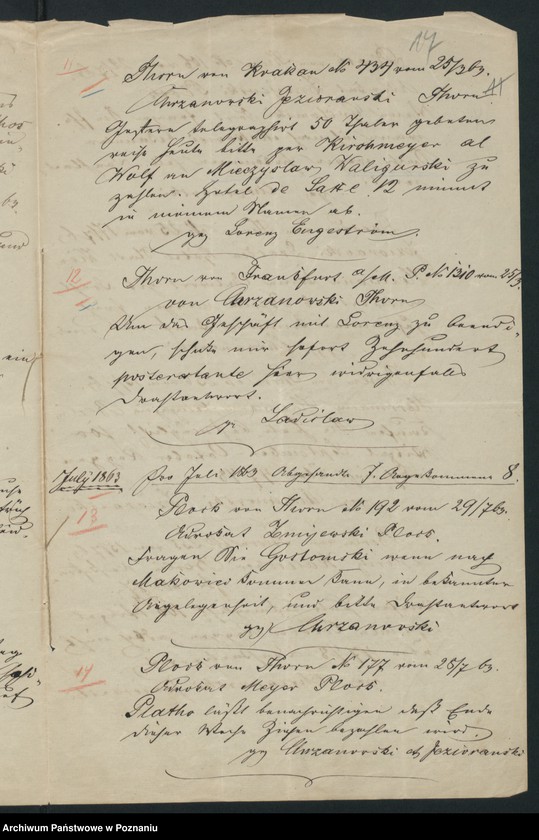 17
11
Thorn von Krakau No 434 vom 25/3 63.
Chrzanowski Jezioranski Thorn
Gestern telegraphirt 50 Thaler gebeten
reise heute bitte per Kirchmeyer al
Wolf an Mieczyslaw Waligurski zu
zahlen. Hotel de Saxe 12 nimmt
in meinem Namen ab.
gez Lorenz Engeström.
12
Thorn von Frankfurt a/M. P. No 1310 vom 25/3.
von Chrzanovski Thorn
Um das Geschäft mit Lorenz zu beendi-
gen, schicke mir sofort Zehnhundert
posterestante hier widrigenfalls
Drahtantwort.
Ladislaw
July 1863
Pro Juli 1863 Abgesandte 7. Angekommene 8.
13
Plock von Thorn No 192 vom 29/7 63.
Advokat Zmijewski Plock.
Fragen Sie Gostomski wenn nach
Makovice kommen kann, in bekannter
Angelegenheit, und bitte Drahtantwort
gez Chrzanovski
14
Plock von Thorn No 177 vom 25/7 63.
Advokat Meyer Plock.
Platho läßt benachrichtigen daß Ende
dieser Woche Ziehen bezahlen wird.
gez Chrzanovski et Jezioranski
Archiwum Państwowe w Poznaniu